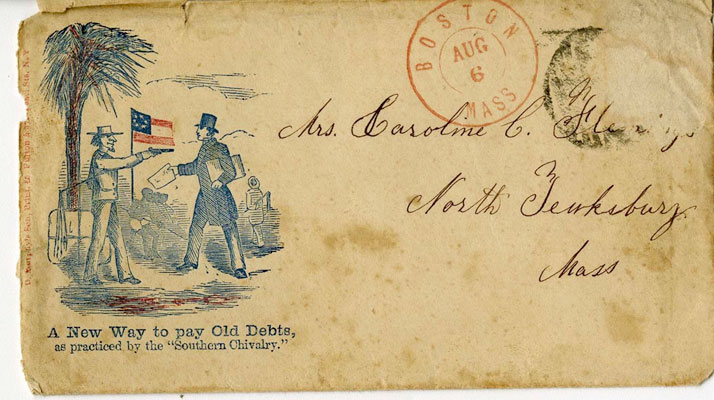 BOSTON
AUG
6
MASS
Mrs. Caroline C.
North Tewksbury.
Mass
A New Way to pay Old Debts,
as practiced by the "Southern Chivalry."